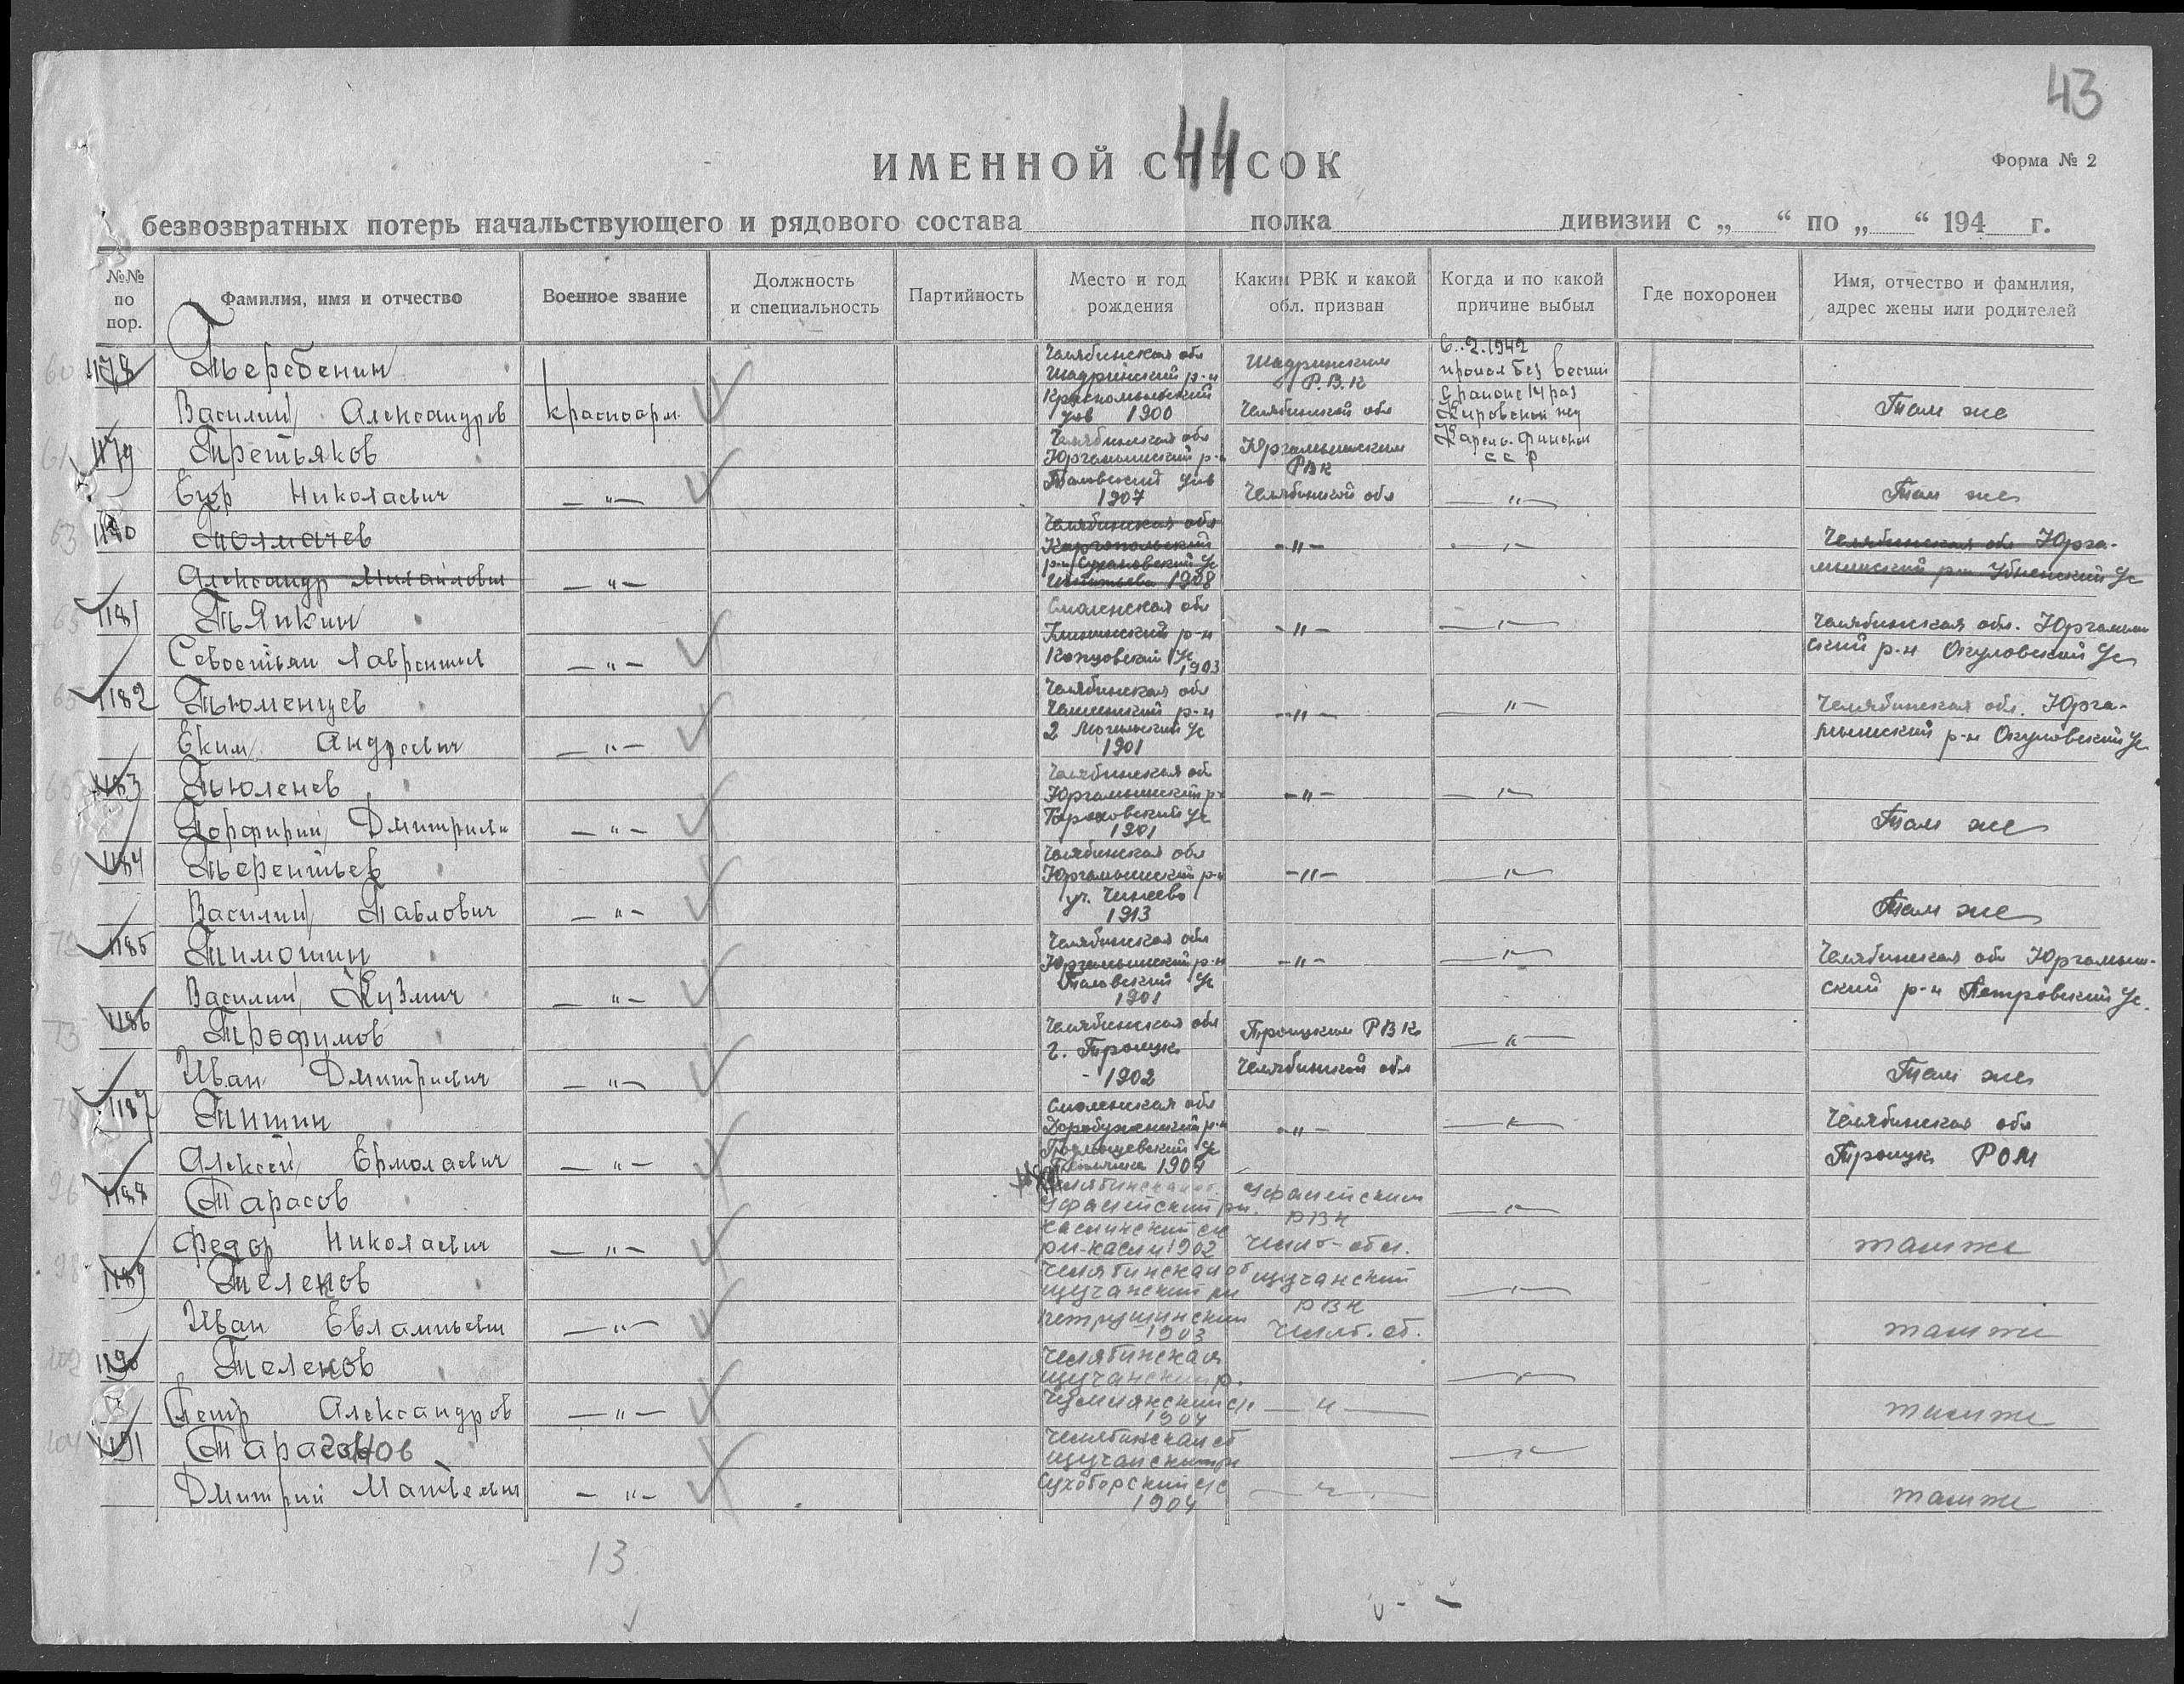 43
44
ИМЕННОЙ СПИСОК
Форма № 2
безвозвратных потерь начальствующего и рядового состава полка дивизии с „ “ по „ “ 194 г.
№№ по пор.
Фамилия, имя и отчество
Военное звание
Должность и специальность
Партийность
Место и год рождения
Каким РВК и какой обл. призван
Когда и по какой причине выбыл
Где похоронен
Имя, отчество и фамилия, адрес жены или родителей
60 1178 Теребенин
Василий Александров
Красноарм.
Челябинская обл
Шадринский р-н
1900
Шадринским
Р.В.К
Челябинской обл
6.2.1942
пропал без вести
в районе 14 раз
Кировской жд
Карело-Финской
ССР
Там же
61 1179 Третьяков
Егор Николаевич
— " —
Челябинская обл
Юргамышский р-н
1907
Юргамышским
РВК
Челябинской обл
— " —
Там же
63 1180 Толмачев
Александр Михайлович
— " —
Челябинская обл
Каргопольский
р-н Сухановский
1908
— " —
— " —
Челябинская обл Юрга-
мышский р-н
1181 Тяпкин
Севостьян Лаврентьев
— " —
Смоленская обл
р-н
1903
— " —
— " —
Челябинская обл. Юргамыш
ский р-н Окуловский Ус
1182 Тюменцев
Еким Андреевич
— " —
Челябинская обл
р-н
1901
— " —
— " —
Челябинская обл. Юрга-
мышский р-н Окуловский Ус
1183 Тюленев
Порфирий Дмитриев
— " —
Челябинская об
Юргамышский р-н
1901
— " —
— " —
Там же
1184 Терентьев
Василий Павлович
— " —
Челябинская обл
Юргамышский р-н
1913
— " —
— " —
Там же
1185 Тимошин
Василий Кузмич
— " —
Челябинская обл
Юргамышский р-н
1901
— " —
— " —
Челябинская обл Юргамыш-
ский р-н Петровский Ус.
73 1186 Трофимов
Иван Дмитриевич
— " —
Челябинская обл
г. Троицк
1902
Троицким РВК
Челябинской обл
— " —
Там же
78 1187 Тишин
Алексей Ермолаевич
— " —
Смоленская обл
р-н
1904
— " —
— " —
Челябинская обл
Троицк РОМ
96 1188 Тарасов
Федор Николаевич
— " —
Челябинская об
Уфалейский рн.
Каслинский
1902
Уфалейским
РВК
Челяб-обл.
— " —
там же
98 1189 Теленов
Иван Евлампьевич
— " —
Челябинская об
Щучанский рн
1903
Щучанский
РВК
Челяб. об.
— " —
там же
102 1190 Теленов
Петр Александров
— " —
Челябинская
Щучанский р.
Чумлякский с/с
1904
— " —
— " —
там же
104 1191
Дмитрий Матвеевич
— " —
Челябинская об
Щучанский рн
Сухоборский с/с
1904
— " —
— " —
там же
13